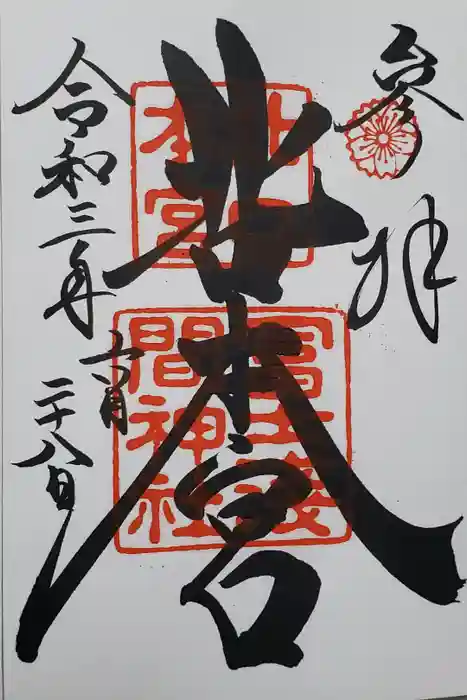 参拝
北口本宮
北口
本宮
冨士淺
間神社
令和三年
十一月
二十八日